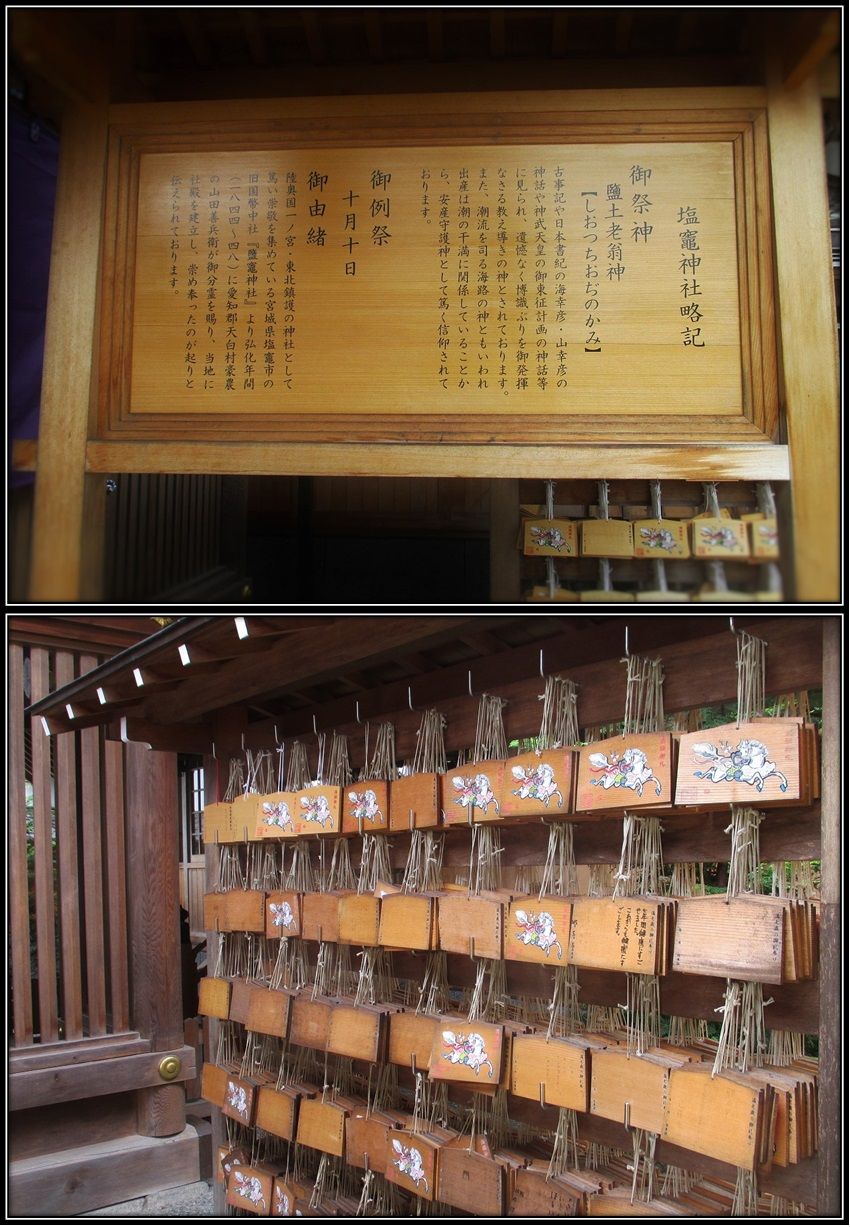 塩竈神社略記
御祭神
鹽土老翁神
【しおつちおぢのかみ】
古事記や日本書紀の海幸彦・山幸彦の
神話や神武天皇の御東征計画の神話等
に見られ、遺憾なく博識ぶりを御発揮
なさる教え導きの神とされております。
また、潮流を司る海路の神ともいわれ
出産は潮の干満に関係していることか
ら、安産守護神として篤く信仰されて
おります。
御例祭
十月十日
御由緒
陸奥国一ノ宮・東北鎮護の神社として
篤い崇敬を集めている宮城県塩竈市の
旧国幣中社『鹽竈神社』より弘化年間
(一八四四~四八)に愛知郡天白村豪農
の山田善兵衛が御分霊を賜り、当地に
社殿を建立し、崇め奉ったのが起りと
伝えられております。